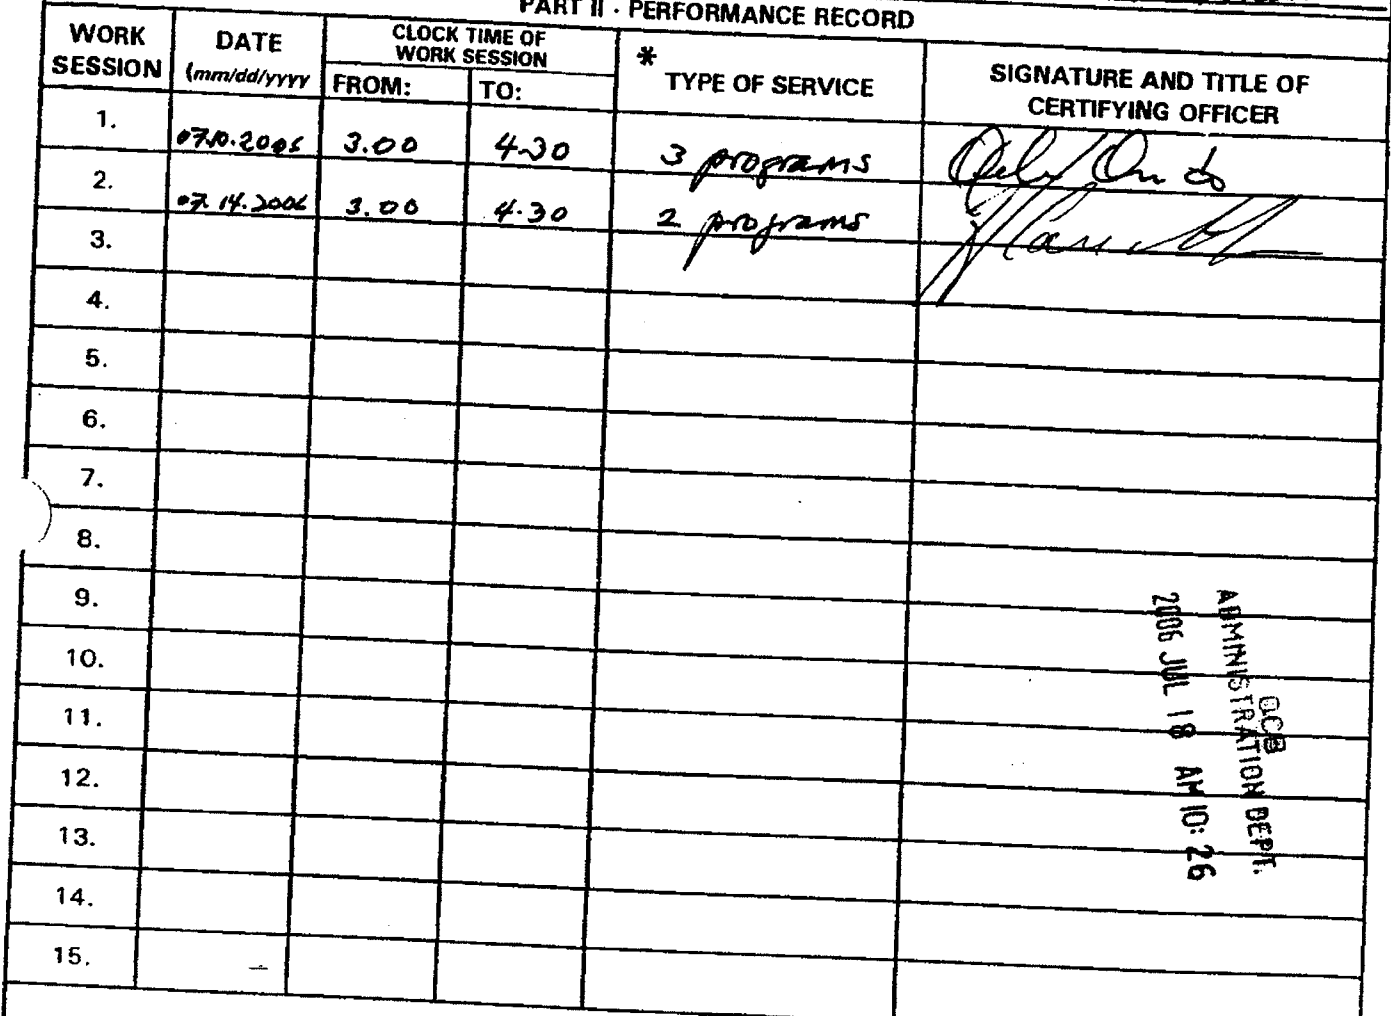 PART II - PERFORMANCE RECORD
WORK SESSION DATE (mm/dd/yyyy CLOCK TIME OF WORK SESSION FROM: TO: * TYPE OF SERVICE SIGNATURE AND TITLE OF CERTIFYING OFFICER
1. 07.10.2006 3.00 4.30 3 programs
2. 07.14.2006 3.00 4.30 2 programs
3.
4.
5.
6.
7.
8.
9.
10.
11.
12.
13.
14.
15.
OCB
ADMINISTRATION DEPT.
2006 JUL 18 AM 10:26